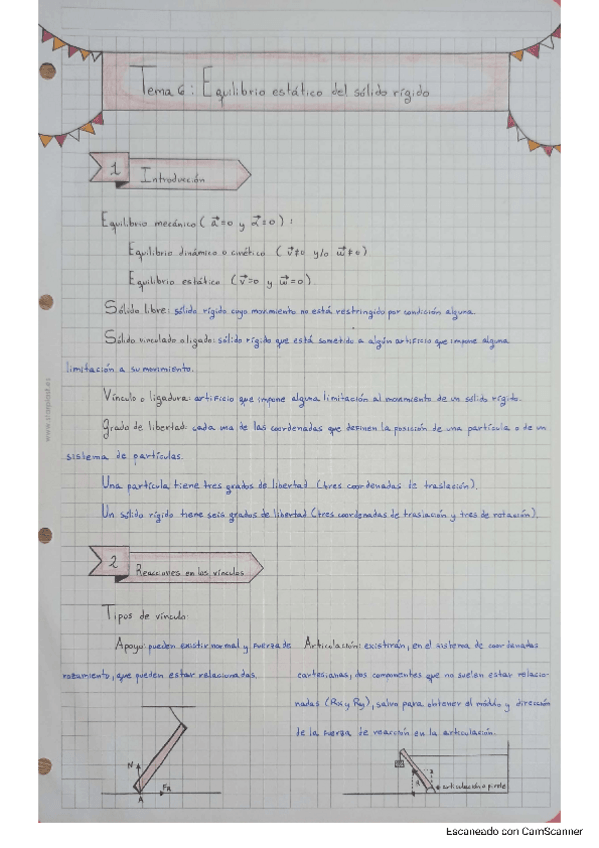 Tema 6: Equilibrio estático del sólido rígido
1
Introducción
Equilibrio mecánico (a⃗=0 y α⃗=0):
Equilibrio dinámico o cinético (v⃗≠0 y/o w⃗≠0)
Equilibrio estático (v⃗=0 y w⃗=0).
Sólido libre: sólido rígido cuyo movimiento no está restringido por condición alguna.
Sólido vinculado o ligado: sólido rígido que está sometido a algún artificio que impone alguna
limitación a su movimiento.
Vínculo o ligadura: artificio que impone alguna limitación al movimiento de un sólido rígido.
Grado de libertad: cada una de las coordenadas que definen la posición de una partícula o de un
sistema de partículas.
Una partícula tiene tres grados de libertad (tres coordenadas de traslación).
Un sólido rígido tiene seis grados de libertad (tres coordenadas de traslación y tres de rotación).
2
Reacciones en los vínculos
Tipos de vínculo:
Apoyo: pueden existir normal y fuerza de
rozamiento, que pueden estar relacionadas.
Articulación: existirán, en el sistema de coordenadas
cartesianas, dos componentes que no suelen estar relacio-
nadas (Rx y Ry), salvo para obtener el módulo y dirección
de la fuerza de reacción en la articulación.
N
FR
A
articulación o pivote
Escaneado con CamScanner